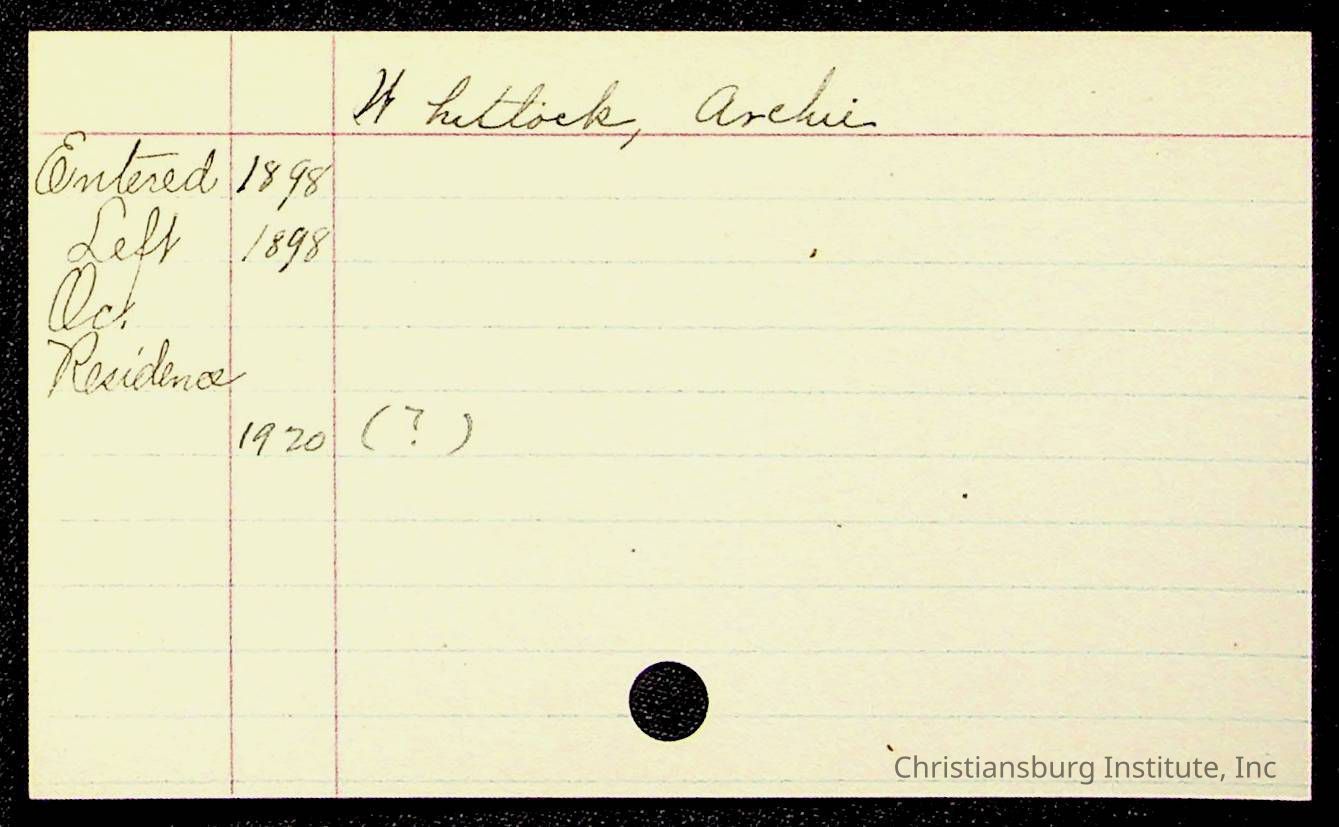 Whitlock, Archie
Entered 1898
Left 1898
Oc.
Residence
1920 (?)
Christiansburg Institute, Inc